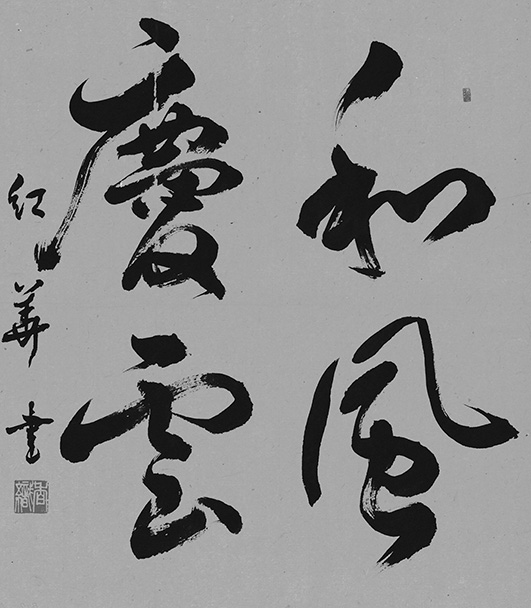 和風
慶雲
紅華書